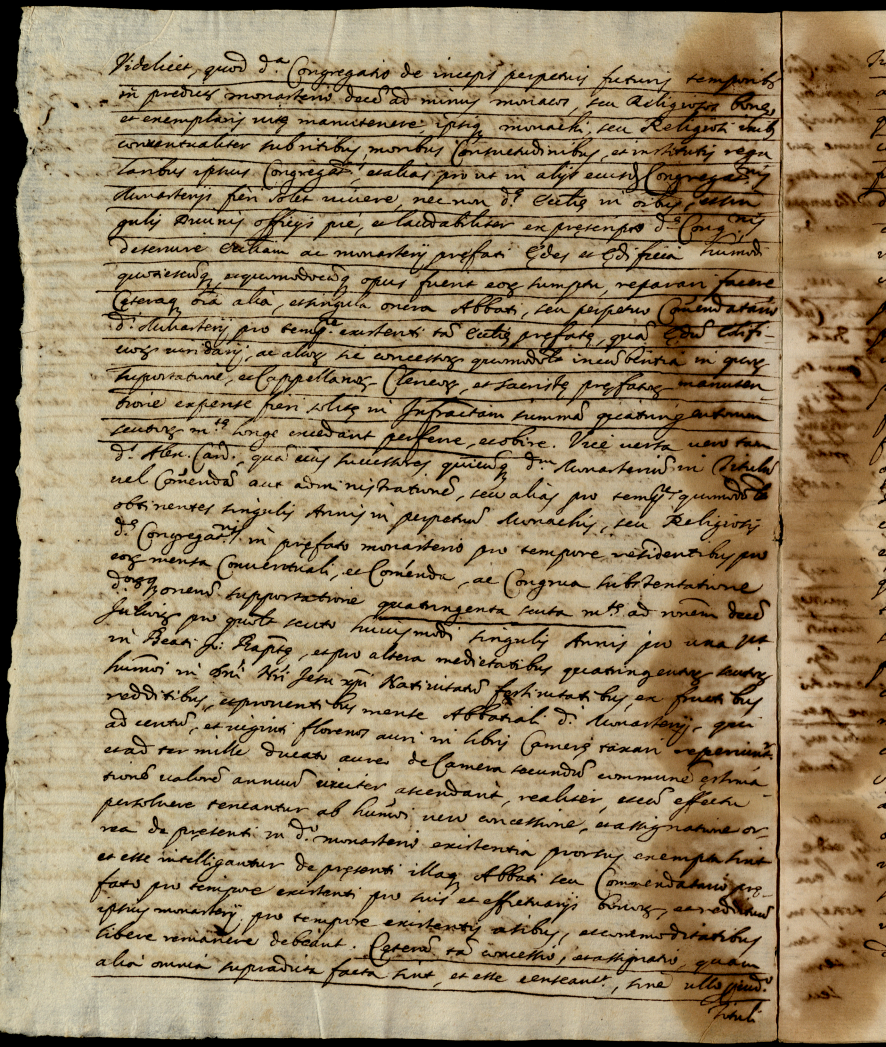 Videlicet, quod d.ᵃ Congregatio de inceps perpetuis futuris temporib;
in predicto monasterio decē ad minus monacos, seu Religiosos bonę,
et exemplaris vitę manutenere ipsiq; monachi, seu Religiosi inib
conventualiter sub ritibus, moribus Consuetudinibus, et institutis regu
laribus ipsius Congregat.ⁿⁱˢ, et alias pro ut in alijs eiusd. Congregat.ⁿⁱˢ
Monasterijs fieri solet vivere, nec non d.ᵉ Ecclię in oībus, et sin
gulis Divinis offitijs pié, et laudabiliter ex pręsenpto d.ᵉ Cong.ⁿⁱˢ
deservire Eccliam ac monasterij pręfati Ędes et Ędificia humōi
quotiescūq; et quomodocūq; opus fuerit eoȝ sumptu, reparari facere
Cęteraq; oīa alia, et singula onera Abbati, seu perpetuo Com̄endatario
d.ⁱ Monasterij pro temp.ʳᵉ existenti tā Ecclię pręfatę, quā Ędiū Edifi-
cioȝ viridarij, ac alioȝ sic concessoȝ quomodolt incūbentia in quoȝ
supportatione, et Cappellanoȝ Clericoȝ, et sacristę pręfatoȝ manuten
tione expense fieri solitę in Infractam summā quatringentorum
scutoȝ m.ᵗᵉ longe excedant perferre, et obire. Vice versa vero tam
d.ˢ Alex. Card., quā eius successores quicūq; d.ᵐ Monasteriū in Titulū
vel Com̄endā aut administrationē, seu alias pro temp.ʳᵉ quomodolt
obtinentes singulis Annis in perpetuū Monachis, seu Religiosis
d.ᵉ Congregat.ⁿⁱˢ in pręfato monasterio pro tempore residentibus pro
eoȝ mensa Conventuali, et Com̄enda, ac Congrua substentatione
d.oȝq; onerū supportatione quatringenta scuta m.ᵗᵉ ad ronem decē
Juliorȝ pro quolt scuto huiusmodi singulis Annis pro una vzt
in Beati Jo: Baptę, et pro altera medietatibus quatringentoȝ scutoȝ
humōi in Dnī Nrī Jesu xpī Nativitatis festivitatibus, ex fructibus
redditibus, et proventibus mense Abbatiali d.ⁱ Monasterij, qui
ad centū, et viginti florenos auri in libris Camerę taxati reperiunt.ʳ
et ad ter mille ducatos aureos de Camera secundū communē estima
tionē valorē annuū viciter ascendant, realiter, et cū effectu
persolvere teneantur ab humōi vero concessione, et assignatione or-
rea de pręsenti in d.ᵒ monasterio existentia prorsus exempta sint
et esse intelligantur de pręsenti illaq; Abbati seu Commendatario pre-
fato pro tempore existenti pro suis et effectuarijs bonoȝ, et redituū
ipsius monasterij pro tempore existentis usibus, et com̄oditatibus
libere remanere debeant. Cęterū tā concessio, et assignatio, quam
alia omnia supradicta facta sint, et esse censeant.ʳ, sine ullo pręiud.ᵒ
Tituli